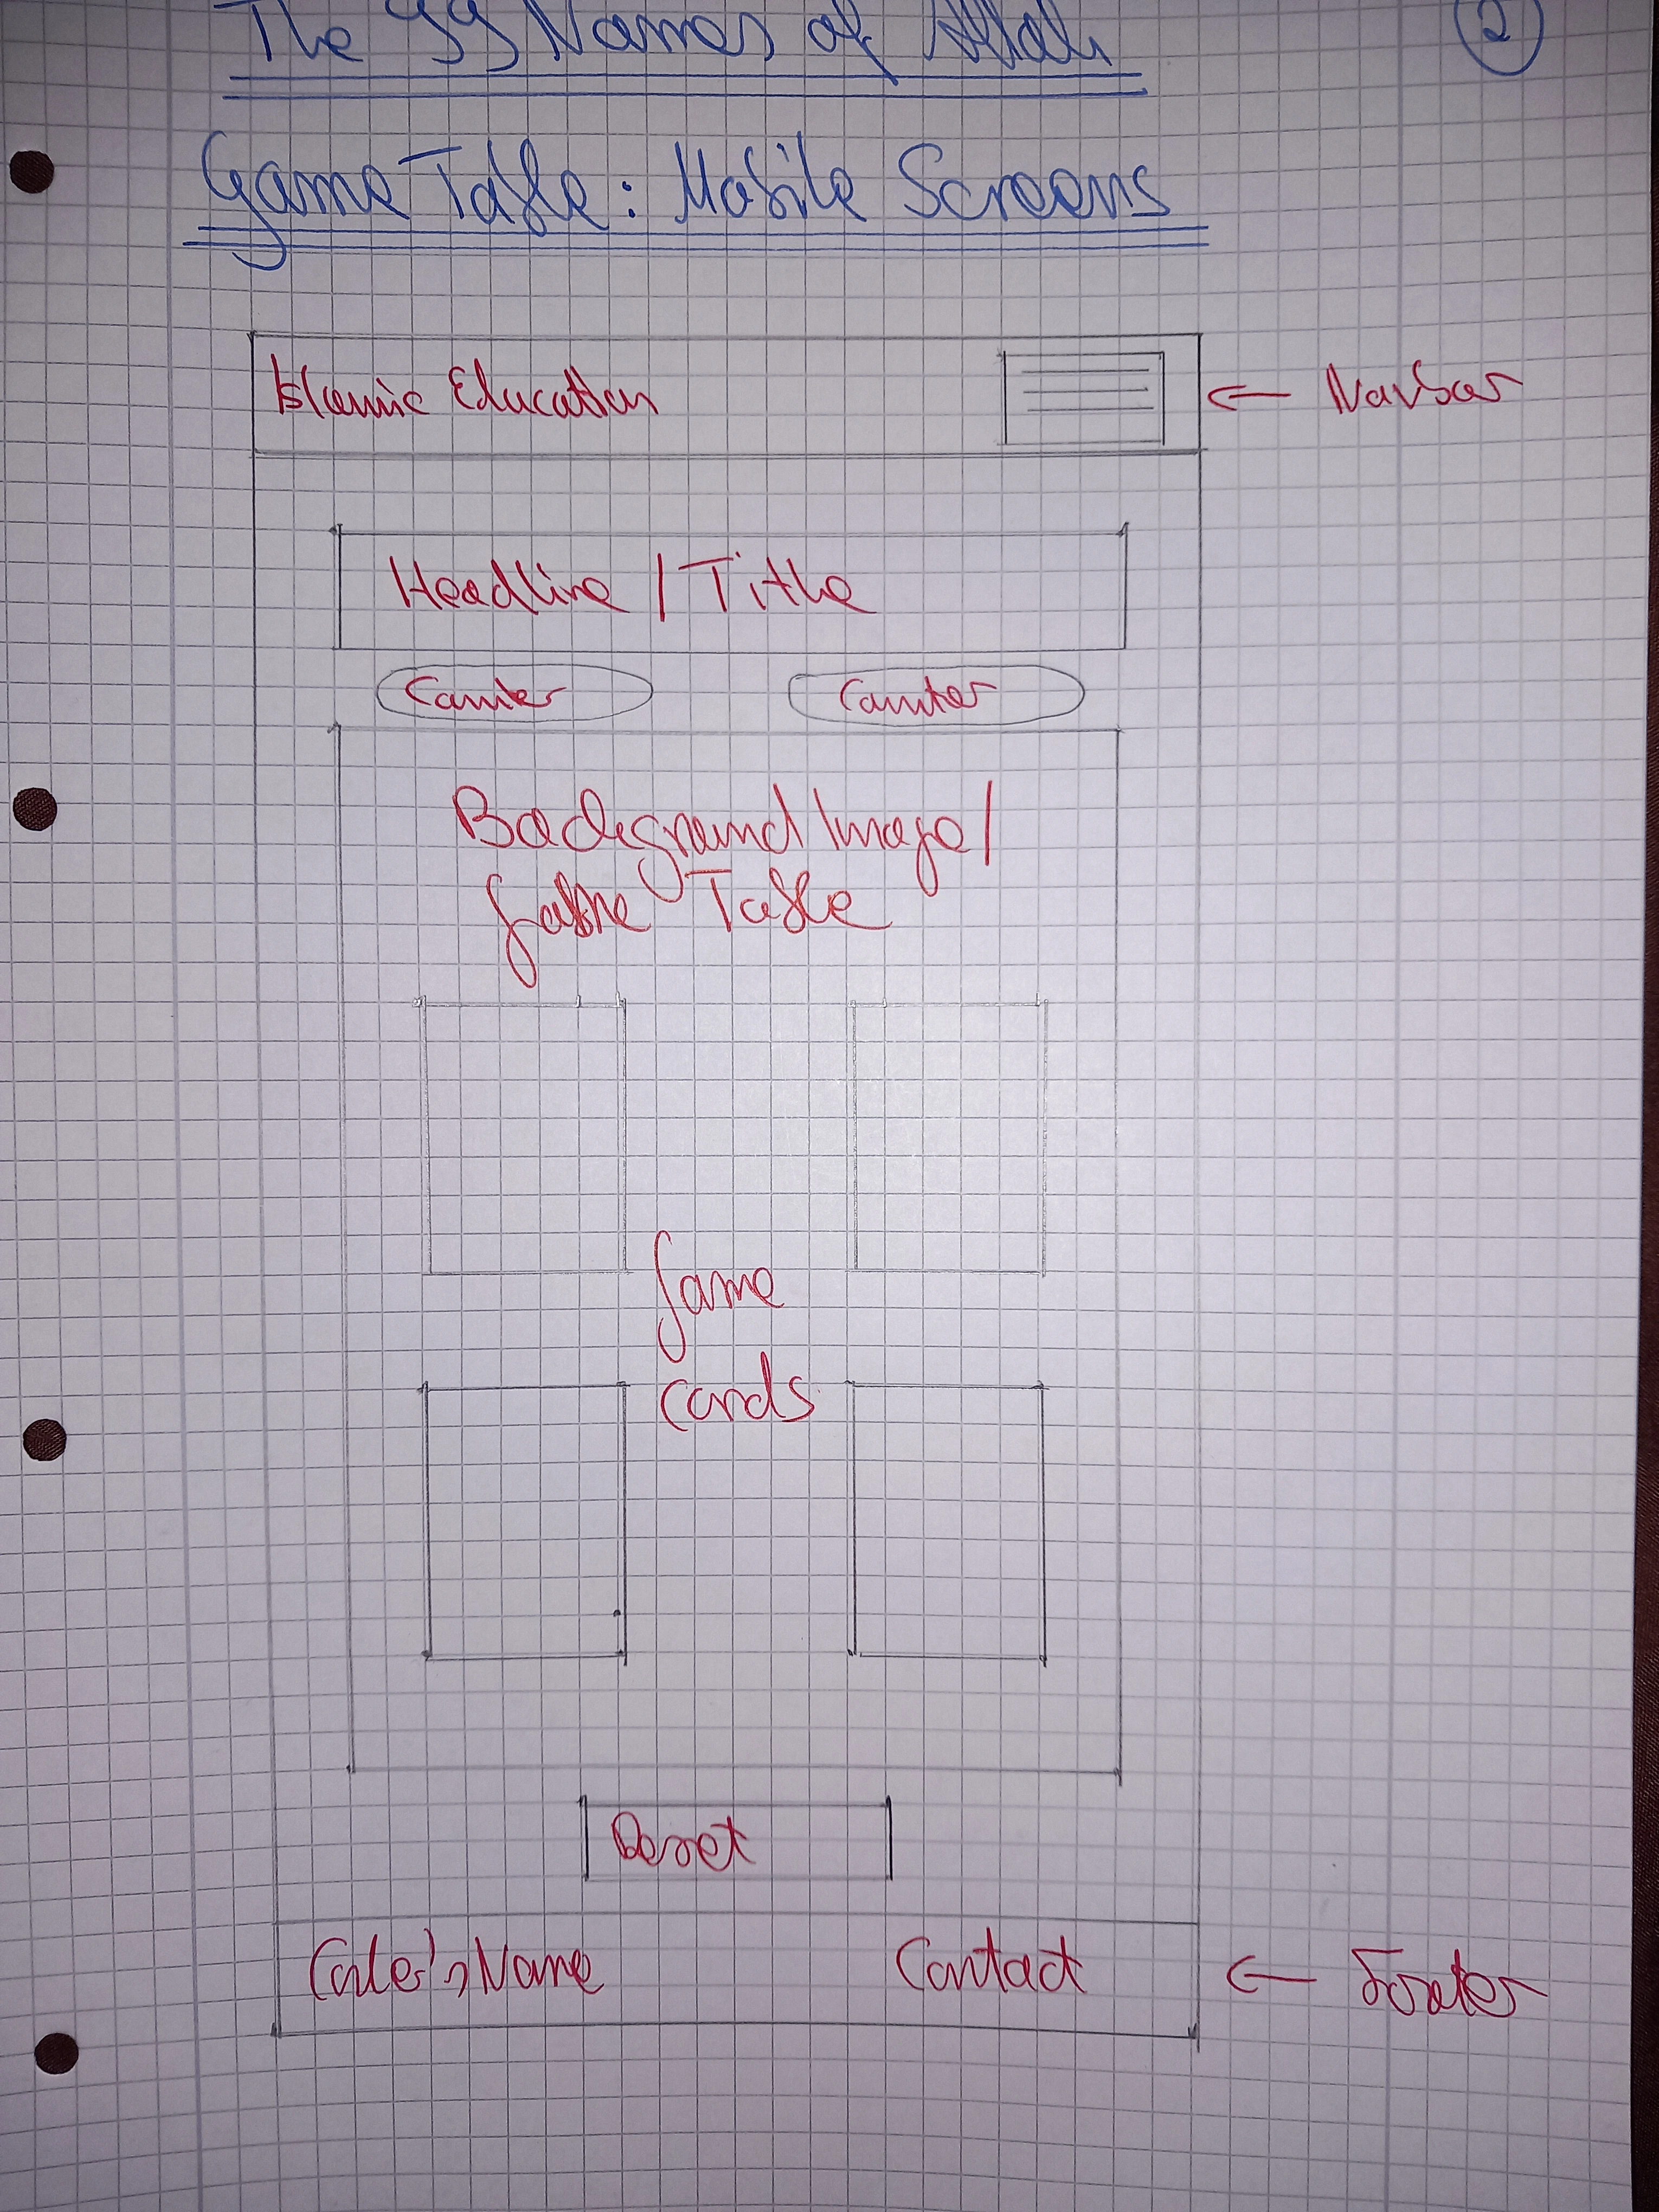 The 99 Names of Allah
2
Game Table: Mobile Screens
Islamic Education
← Navbar
Headline / Title
Counter Counter
Background Image/
Game Table
Game
cards
Reset
Coder's Name Contact
← Footer